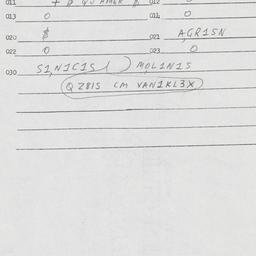 011 012
013 0 014 0
020 $ 021 A,GR15N
022 0 023 0
030 S1,N1C1S ( ) MOL1N1S
QZ81S CM VAN1KL3X